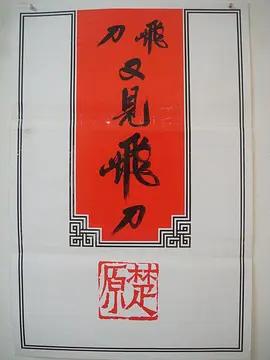 飛刀
又見飛刀
楚原